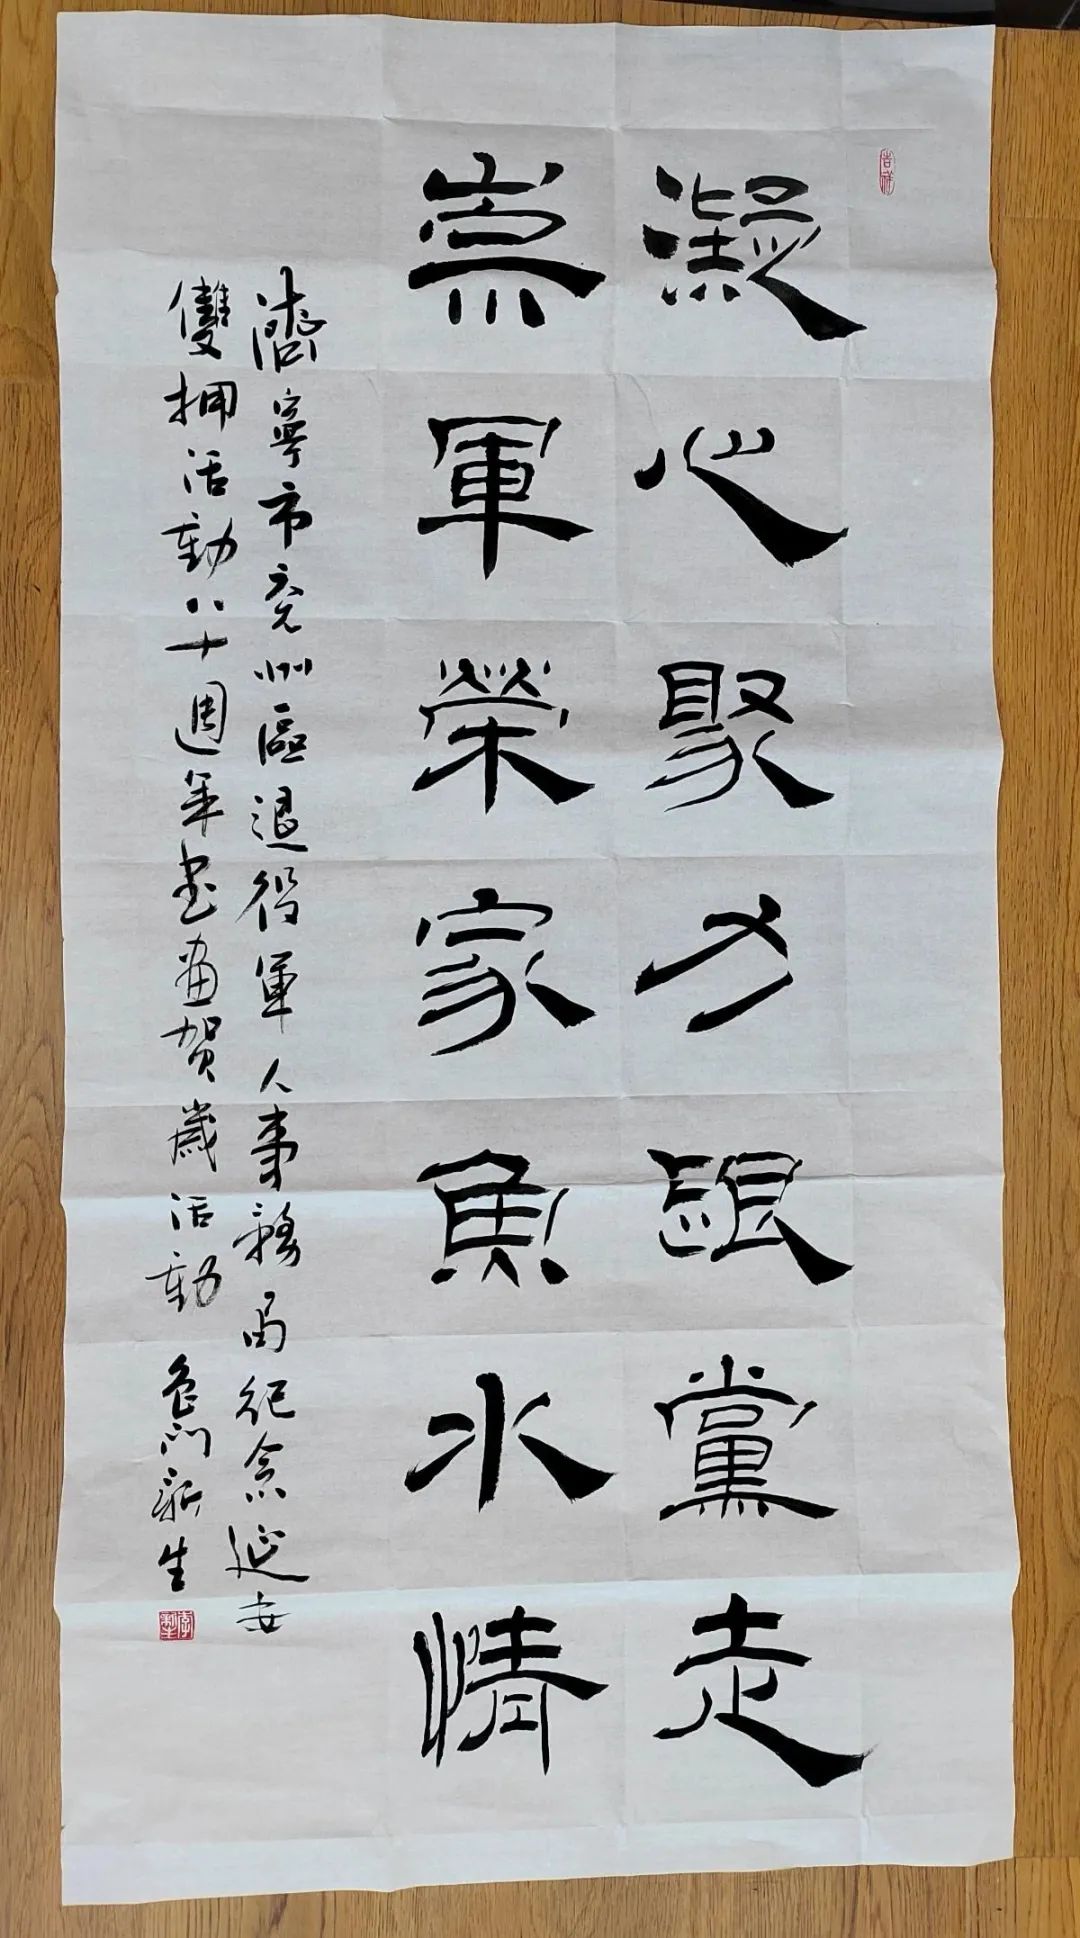 吉祥
凝心聚力跟黨走
崇軍榮家魚水情
濟寧市兖州區退役軍人事務局紀念延安
雙拥活動八十週年书畫贺歲活動 鱼门新生